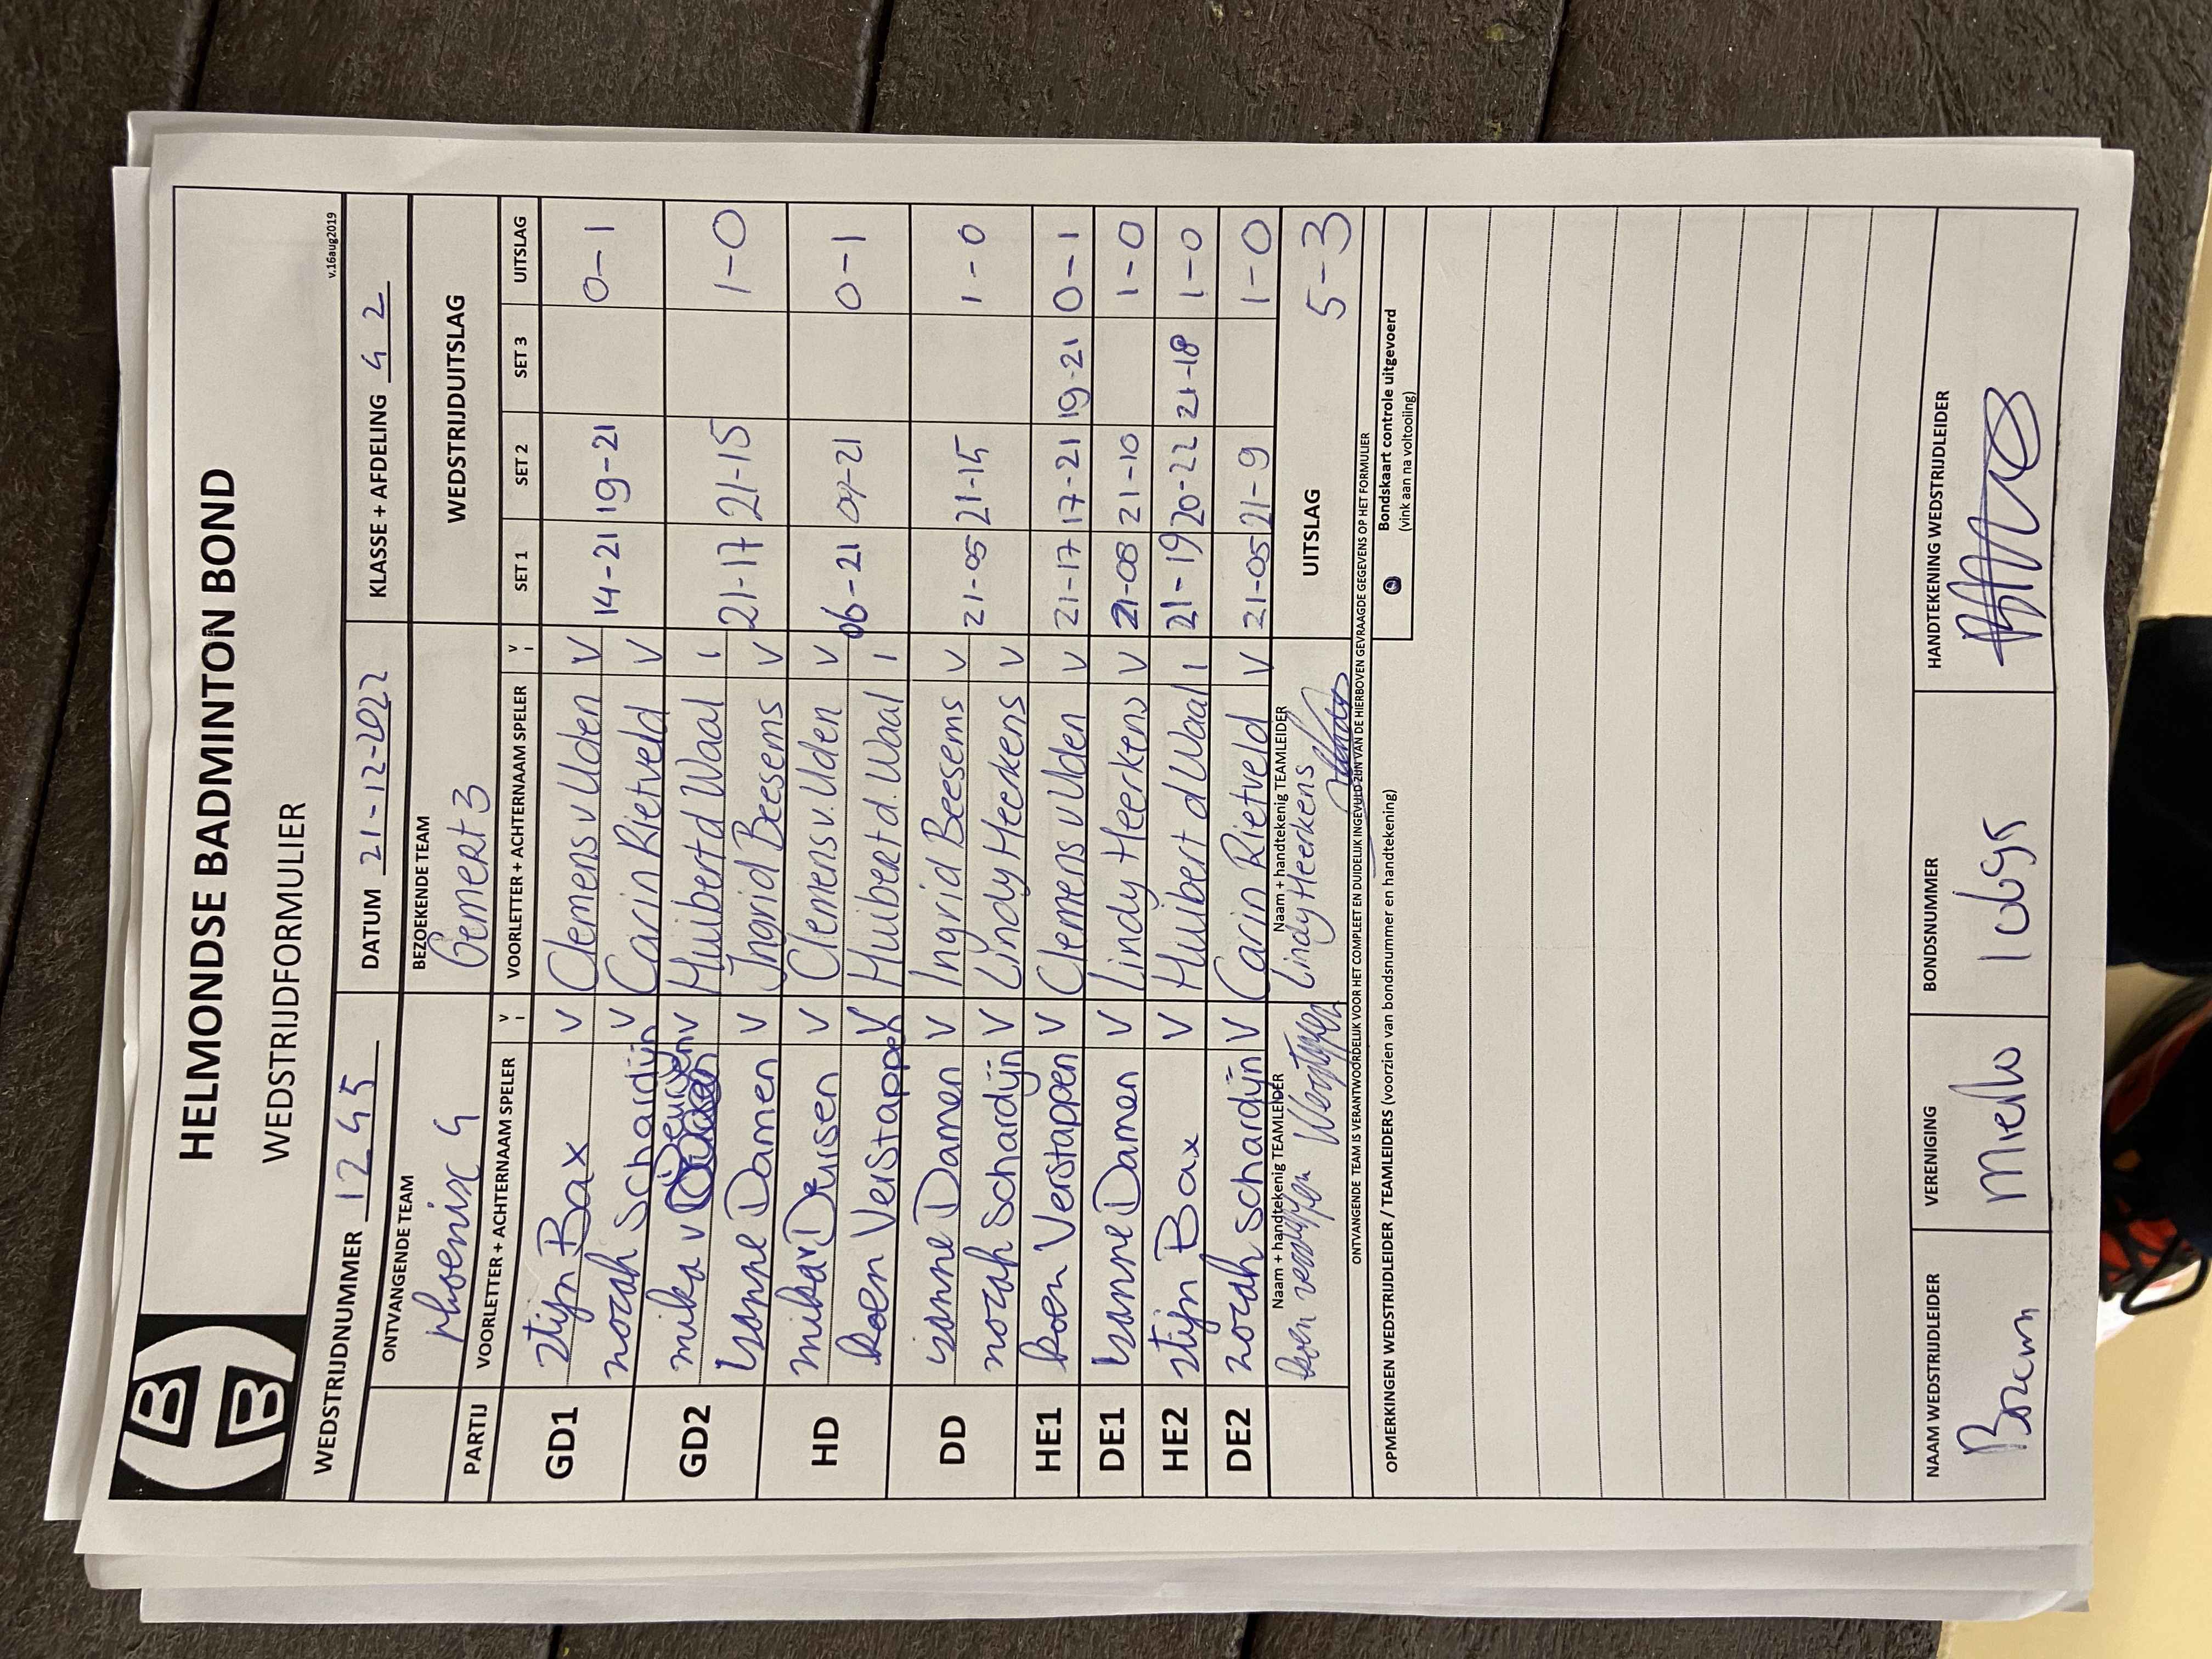 HELMONDSE BADMINTON BOND
WEDSTRIJDFORMULIER
v.16aug2019
WEDSTRIJDNUMMER 1245 DATUM 21-12-2022 KLASSE + AFDELING 4 2
ONTVANGENDE TEAM BEZOEKENDE TEAM WEDSTRIJDUITSLAG
phoenix 4 Gemert 3
PARTIJ VOORLETTER + ACHTERNAAM SPELER V I VOORLETTER + ACHTERNAAM SPELER V I SET 1 SET 2 SET 3 UITSLAG
GD1 stijn Bax V Clemens v Uden V 14-21 19-21 0-1
norah Schardijn V Carin Rietveld V
GD2 mika v Deursen V Huibert d Waal I 21-17 21-15 1-0
Isanne Damen V Ingrid Beesems V
HD mika v Deursen V Clemens v. Uden V 06-21 07-21 0-1
koen Verstappen V Huibert d. Waal I
DD isanne Damen V Ingrid Beesems V 21-05 21-15 1-0
norah Schardijn V Lindy Heerkens V
HE1 koen Verstappen V Clemens v Uden V 21-17 17-21 19-21 0-1
DE1 Isanne Damen V Lindy Heerkens V 21-08 21-10 1-0
HE2 stijn Bax V Huibert d Waal I 21-19 20-22 21-18 1-0
DE2 norah schardijn V Carin Rietveld V 21-05 21-9 1-0
Naam + handtekenig TEAMLEIDER Naam + handtekenig TEAMLEIDER
koen verstappen Lindy Heerkens UITSLAG 5-3
ONTVANGENDE TEAM IS VERANTWOORDELIJK VOOR HET COMPLEET EN DUIDELIJK INGEVULD ZIJN VAN DE HIERBOVEN GEVRAAGDE GEGEVENS OP HET FORMULIER
OPMERKINGEN WEDSTRIJDLEIDER / TEAMLEIDERS (voorzien van bondsnummer en handtekening)
Bondskaart controle uitgevoerd
(vink aan na voltooiing)
NAAM WEDSTRIJDLEIDER VERENIGING BONDSNUMMER HANDTEKENING WEDSTRIJDLEIDER
Mierlo